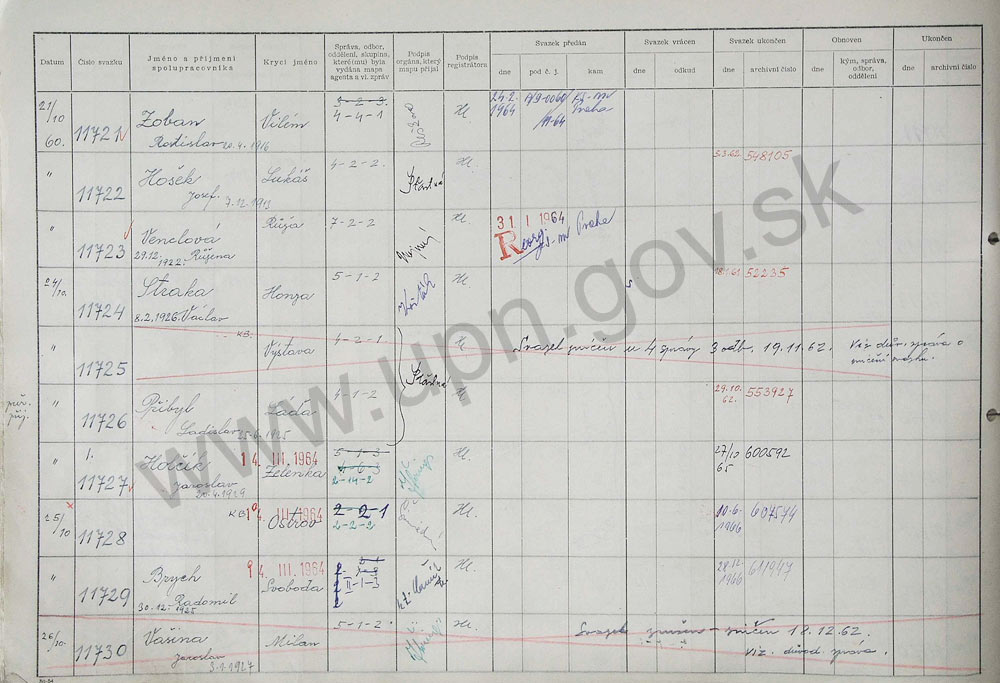 Datum
Číslo svazku
Jméno a příjmení spolupracovníka
Krycí jméno
Správa, odbor, oddělení, skupina, které(mu) byla vydána mapa agenta a vl. zpráv
Podpis orgána, který mapu přijal
Podpis registrátora
Svazek předán
dne
pod č. j.
kam
Svazek vrácen
dne
odkud
Svazek ukončen
dne
archivní číslo
Obnoven
dne
kým, správa, odbor, oddělení
Ukončen
dne
archivní číslo
21/10 60.
11721
Zoban
Rostislav 20.4.1916
Vilém
4-4-1
Hl.
24.2. 1964
A/9-0060/11-64
KS-MV Praha
"
11722
Hosek
Josef. 7.12.1913
Lukáš
4-2-2.
Šťastná
Hl.
3.3.62.
548105
"
11723
Venclová
29.12. 1922. Růžena
Růža
7-2-2
Hl.
31 I 1964
Reorg.
KS-MV Praha
24/10.
11724
Straka
8.2.1926. Václav
Honza
5-1-2
Hl.
52235
"
11725
KB.
Výstava
4-2-1
Hl
Svazek zničen u 4 správy 3 odb. 19.11.62.
Viz dův. zpráva o zničení svazku.
"
11726
Přibyl
Ladislav 25.6.1925
Lada
4-1-2
Šťastná
29.10. 62.
553927
"
11727
Holčík
Jaroslav
20.4.1929
14. III. 1964
Zelenka
5-1-3
2-14-2
Hl.
27/10 65
600592
25/10
11728
KB
III. 1964
Ostrov
2-2-1
2-2-2
Hl.
10.6. 1966
607574
"
11729
Brych
30.12.1925 Radomil
4. III. 1964
Svoboda
II-1-3
Hl.
28.12. 1966
611947
26/10.
11730
Vašina
Jaroslav
3.1.1927
Milan
5-1-2
Hl.
Svazek zrušen - zničen 18.12.62.
Viz. důvod. zpráva.
www.upn.gov.sk